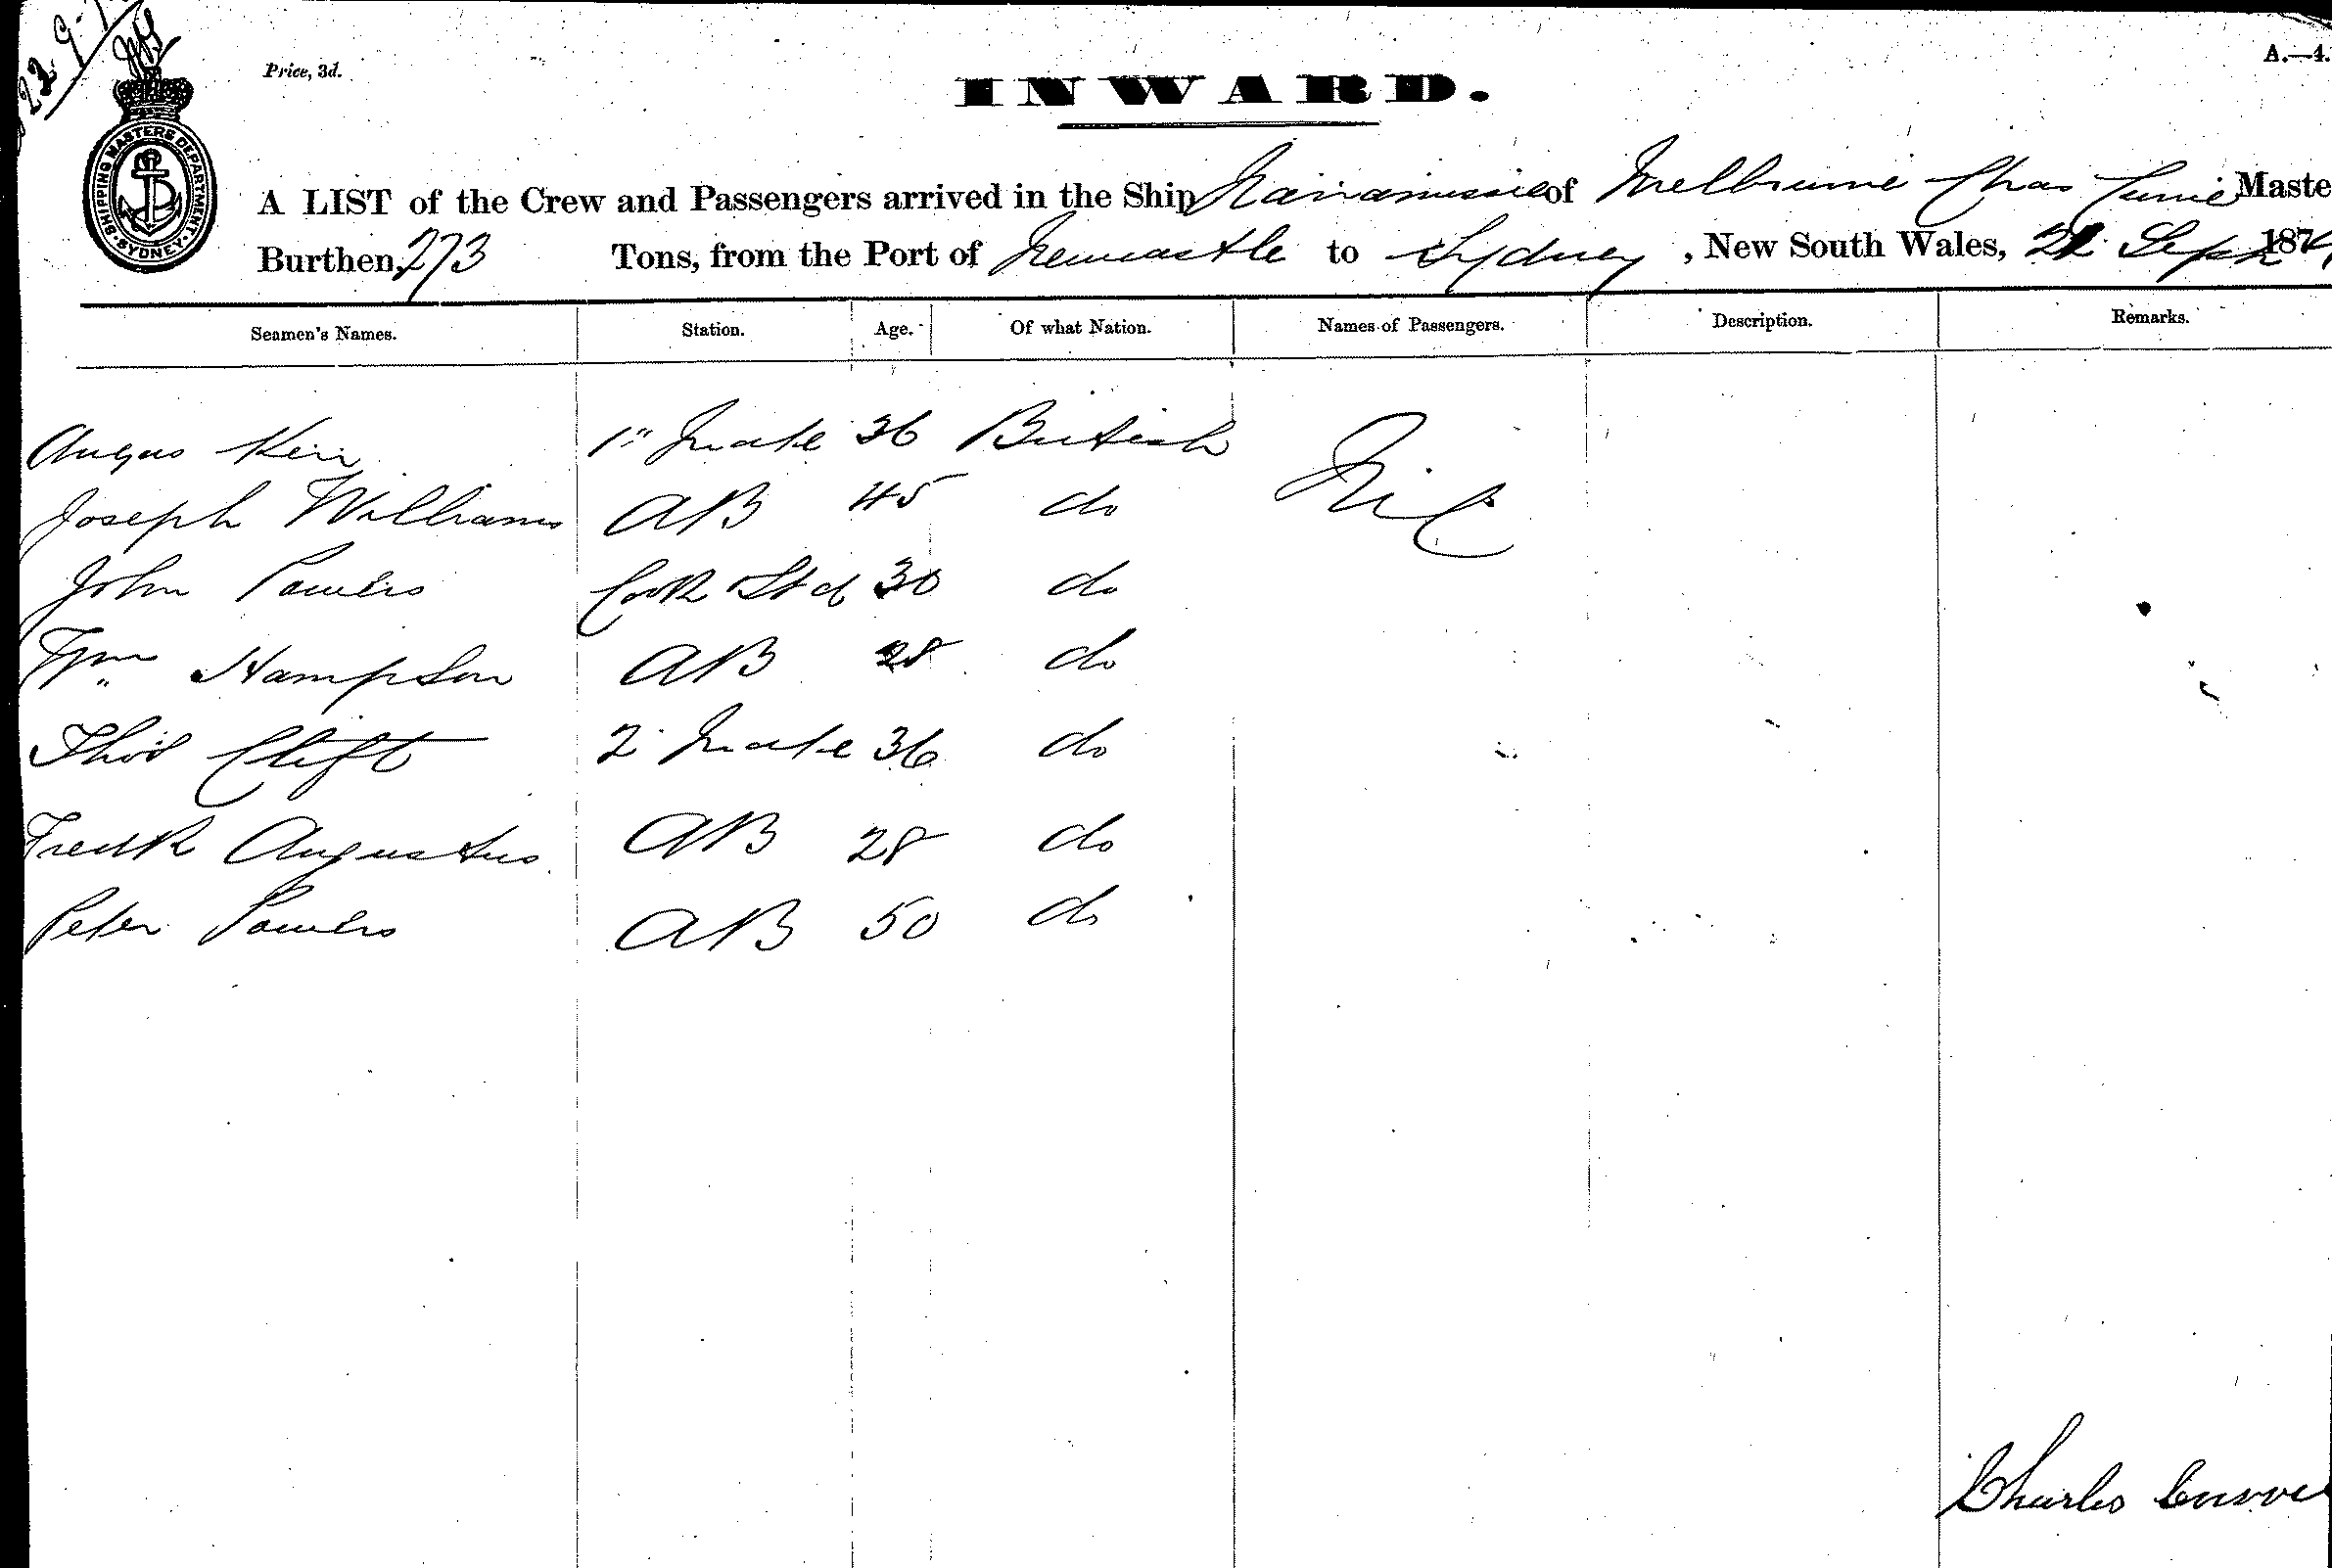 22-9-7
Price, 3d.
A.—4.
INWARD.
SHIPPING MASTERS DEPARTMENT. SYDNEY.
A LIST of the Crew and Passengers arrived in the Ship of Melbourne Chas Maste
Burthen, 273 Tons, from the Port of Newcastle to Sydney, New South Wales, Sept 187
Seamen's Names. Station. Age. Of what Nation. Names of Passengers. Description. Remarks.
Angus Keir 1st Mate 36 British Nil
Joseph Williams AB 45 do
John Powers Cook Std 30 do
Wm Hampson AB 28 do
Thos Clift 2 Mate 36 do
Fredk Augustus AB 28 do
Peter Powers AB 50 do
Charles